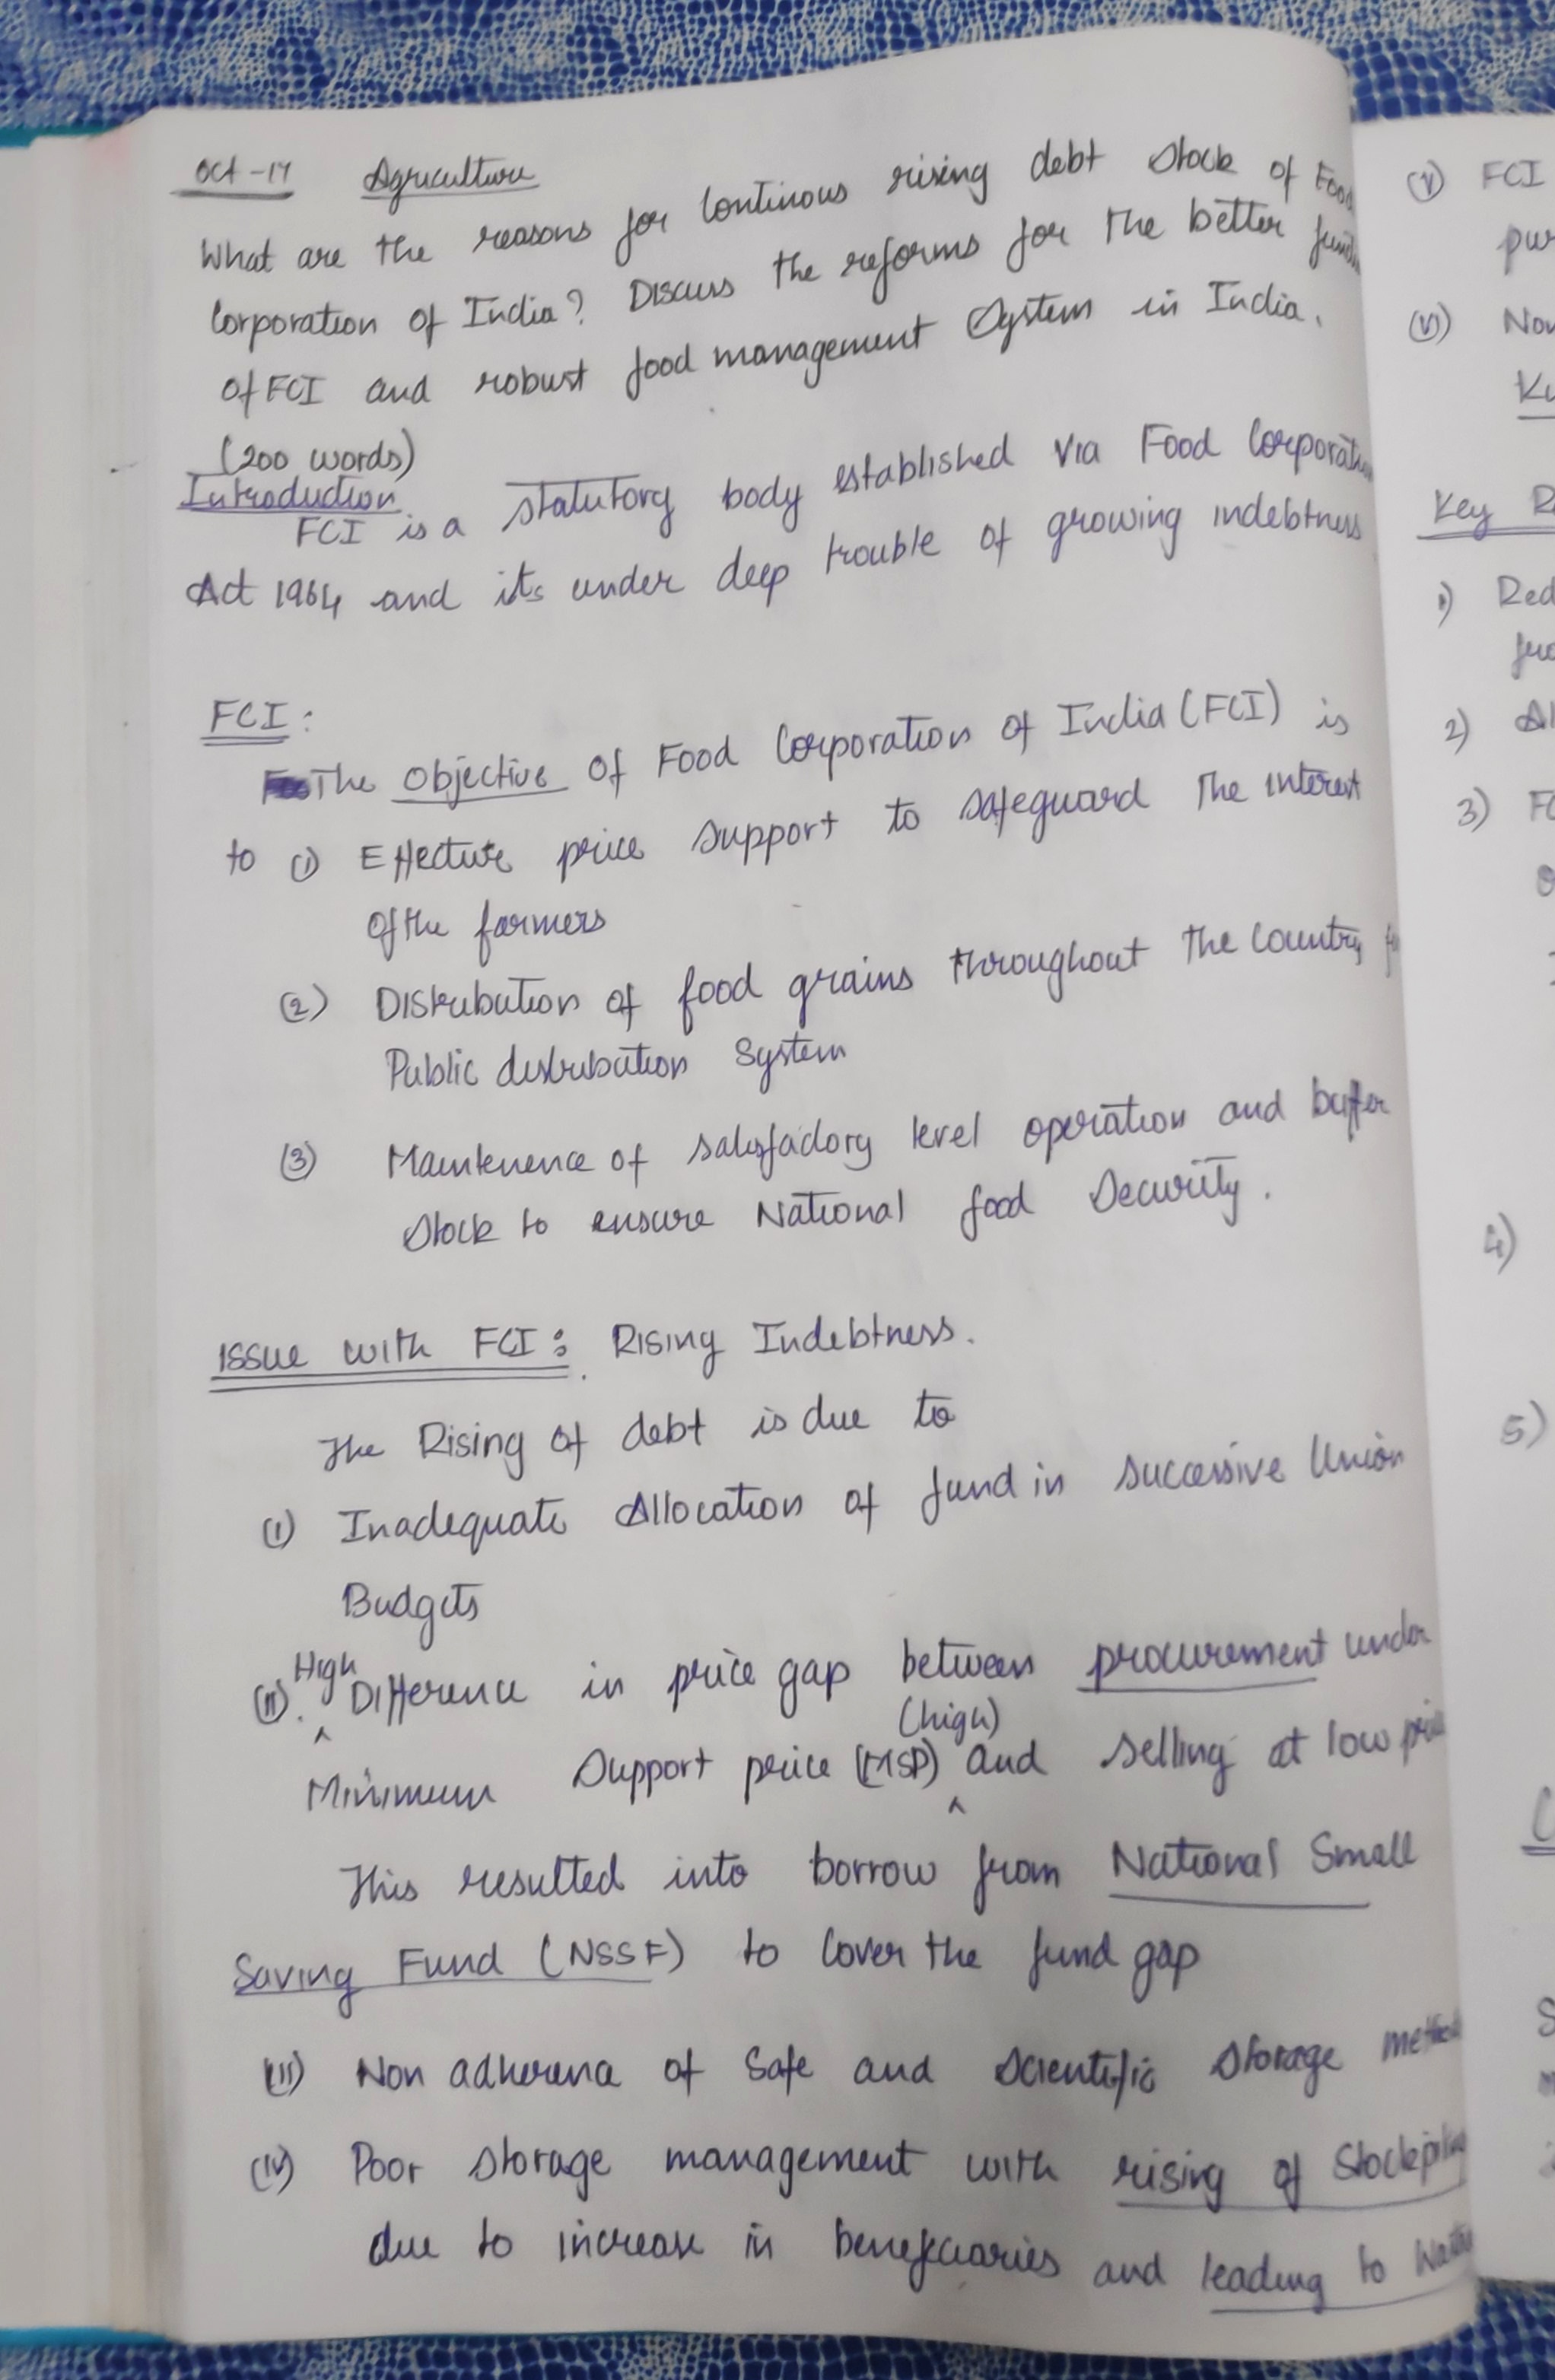 Oct-17 Agriculture
What are the reasons for Continous rising debt stock of Food
Corporation of India? Discuss the reforms for the better
of FCI and robust food management System in India.
(200 words)
Introduction
FCI is a statutory body established via Food
Act 1964 and its under deep trouble of growing indebtness
FCI:
The Objective of Food Corporation of India (FCI) is
to (1) Effective price support to safeguard the interest
of the farmers
(2) Distribution of food grains throughout the Country
Public distribution System
(3) Maintenence of satisfactory level operation and buffer
stock to ensure National food Security.
Issue with FCI: Rising Indebtness.
The Rising of debt is due to
(i) Inadequate Allocation of fund in successive Union
Budgets
(ii). High Difference in price gap between procurement under
Minimum Support price (MSP) (high) and selling at low
This resulted into borrow from National Small
Saving Fund (NSSF) to Cover the fund gap
(iii) Non adherence of Safe and Scientific Storage
(iv) Poor Storage management with rising of
due to increase in beneficiaries and leading to
(V) FCI
(VI)
Key
1)
2)
3)
4)
5)